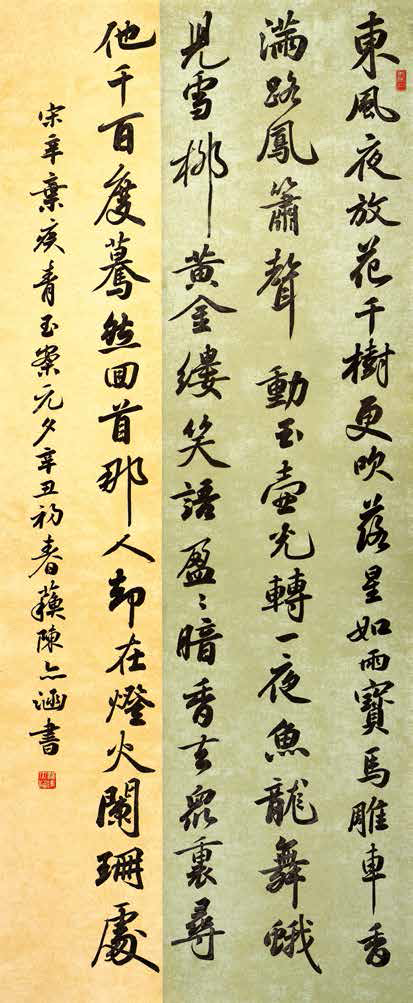 東風夜放花千樹更吹落星如雨寶馬雕車香
滿路鳳簫聲動玉壺光轉一夜魚龍舞蛾
兒雪柳黃金縷笑語盈〻暗香去眾裏尋
他千百度驀然回首那人却在燈火闌珊處
宋辛棄疾青玉案元夕辛丑初春陳亦涵書